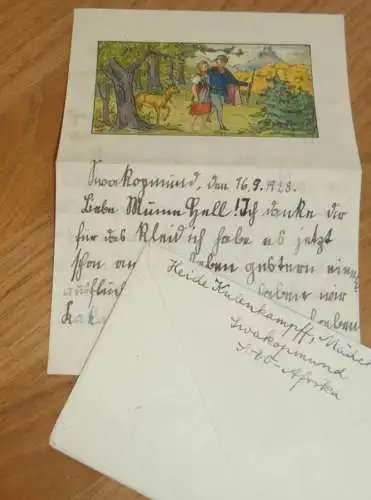 Swakopmund, den 16.9.1928.
Liebe Mume Hell! Ich danke dir
für das Kleid ich habe es jetzt
schon an gestern einen
ausflüch haben wir
Heide Kulenkampff,
Swakopmund
S-W-Afrika